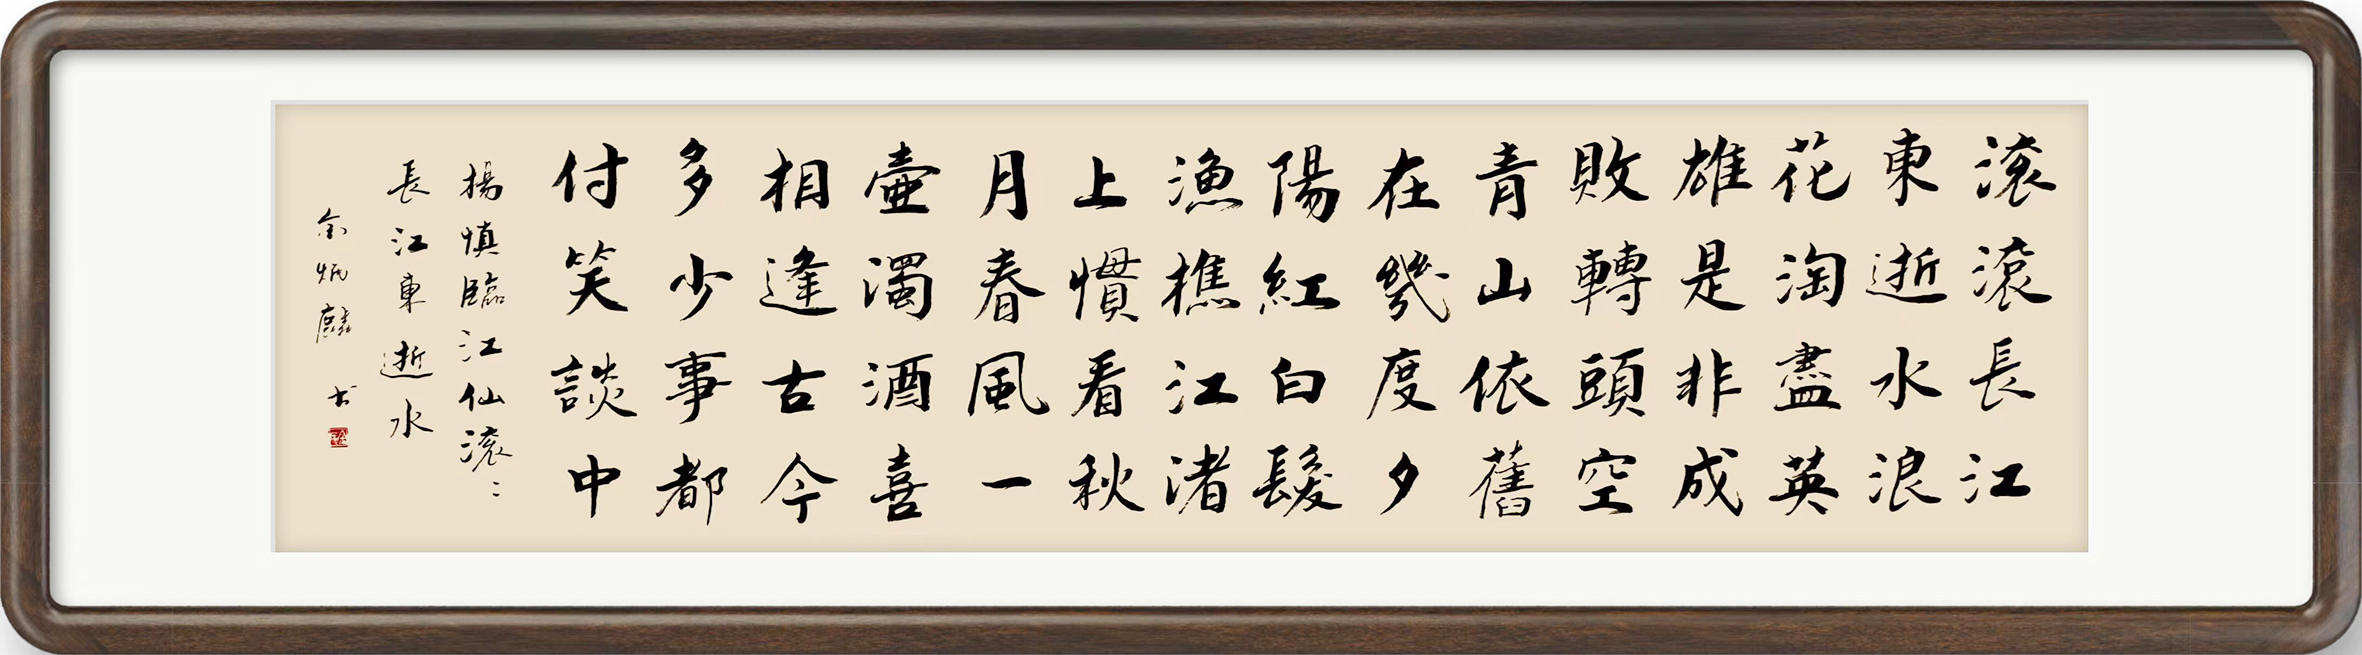 滚滚長江
東逝水浪
花淘盡英
雄是非成
敗轉頭空
青山依舊
在幾度夕
陽紅白髮
漁樵江渚
上慣看秋
月春風一
壺濁酒喜
相逢古今
多少事都
付笑談中
楊慎臨江仙滚〻
長江東逝水
余炳麟书